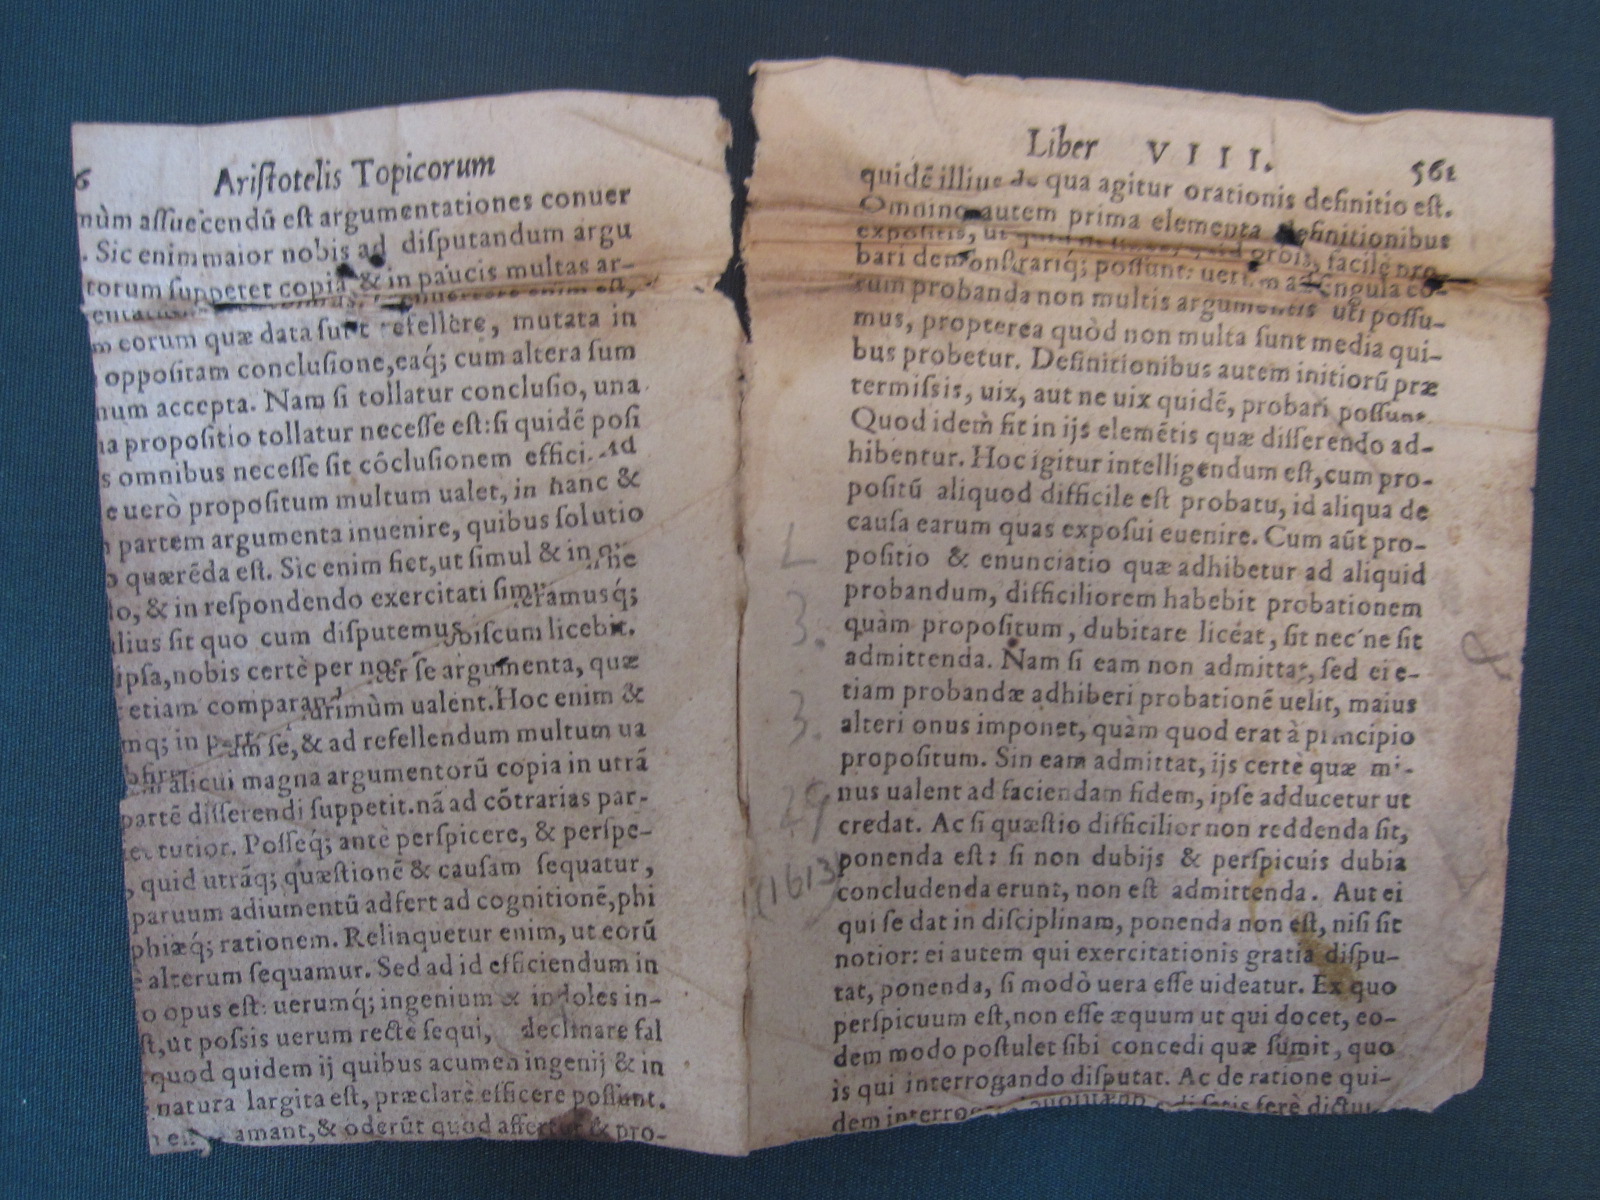 6 Aristotelis Topicorum
mùm assuescendū est argumentationes conuer
. Sic enim maior nobis ad disputandum argu
torum suppetet copia, & in paucis multas ar-
enim est,
m eorum quæ data sunt refellere, mutata in
oppositam conclusione, eaq́; cum altera sum
num accepta. Nam si tollatur conclusio, una
na propositio tollatur necesse est: si quidē posi
s omnibus necesse sit cōclusionem effici. Ad
e uerò propositum multum ualet, in hanc &
partem argumenta inuenire, quibus solutio
quærēda est. Sic enim fiet, ut simul & in
do, & in respondendo exercitati simus
lius sit quo cum disputemus, licebit.
ipsa, nobis certè per nos se argumenta, quæ
etiam comparand plurimùm ualent. Hoc enim &
mq; in se, & ad refellendum multum ua
alicui magna argumentorū copia in utrā
partē disserendi suppetit. nā ad cōtrarias par-
tutior. Posseq́; antè perspicere, & perspe-
, quid utrāq; quæstionē & causam sequatur,
paruum adiumentū adfert ad cognitionē, phi
phiæq́; rationem. Relinquetur enim, ut eorū
alterum sequamur. Sed ad id efficiendum in
o opus est: uerumq́; ingenium & indoles in-
st, ut possis uerum rectè sequi, declinare fal
quod quidem ij quibus acumen ingenij & in
natura largita est, præclarè efficere possunt.
amant, & oderūt quòd affertur & pro-
Liber VIII. 561
quidē illius de qua agitur orationis definitio est.
Omnino autem prima elementa definitionibus
expositis, ut quid sit orbis, facilè pro-
bari demonstrariq́; possunt: uerum ad singula eo-
rum probanda non multis argumentis uti possu-
mus, propterea quòd non multa sunt media qui-
bus probetur. Definitionibus autem initiorū præ
termissis, uix, aut ne uix quidē, probari possunt.
Quod idem fit in ijs elemētis quæ disserendo ad-
hibentur. Hoc igitur intelligendum est, cum pro-
positū aliquod difficile est probatu, id aliqua de
causa earum quas exposui euenire. Cum aūt pro-
positio & enunciatio quæ adhibetur ad aliquid
probandum, difficiliorem habebit probationem
quàm propositum, dubitare liceat, sit nec ne sit
admittenda. Nam si eam non admittat, sed ei e-
tiam probandæ adhiberi probationē uelit, maius
alteri onus imponet, quàm quod erat à principio
propositum. Sin eam admittat, ijs certè quæ mi-
nus ualent ad faciendam fidem, ipse adducetur ut
credat. Ac si quæstio difficilior non reddenda sit,
ponenda est: si non dubijs & perspicuis dubia
concludenda erunt, non est admittenda. Aut ei
qui se dat in disciplinam, ponenda non est, nisi sit
notior: ei autem qui exercitationis gratia dispu-
tat, ponenda, si modò uera esse uideatur. Ex quo
perspicuum est, non esse æquum ut qui docet, eo-
dem modo postulet sibi concedi quæ sumit, quo
is qui interrogando disputat. Ac de ratione qui-
dem satis ferè dictu
3.
3.
29
(1613)